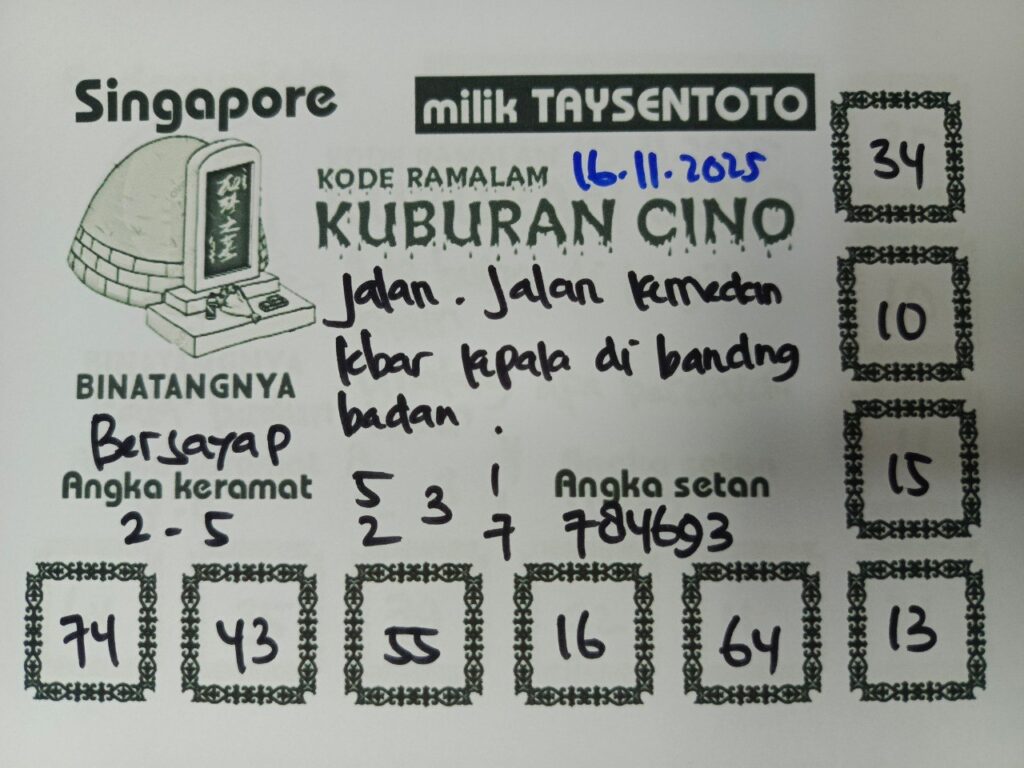 Singapore
milik TAYSENTOTO
KODE RAMALAM 16.11.2025
KUBURAN CINO
Jalan. Jalan kemedan
kbar kepala di bandng
badan.
BINATANGNYA
Bersayap
Angka keramat
2 - 5
5 3 1
2 7
Angka setan
784693
34
10
15
74 43 55 16 64 13